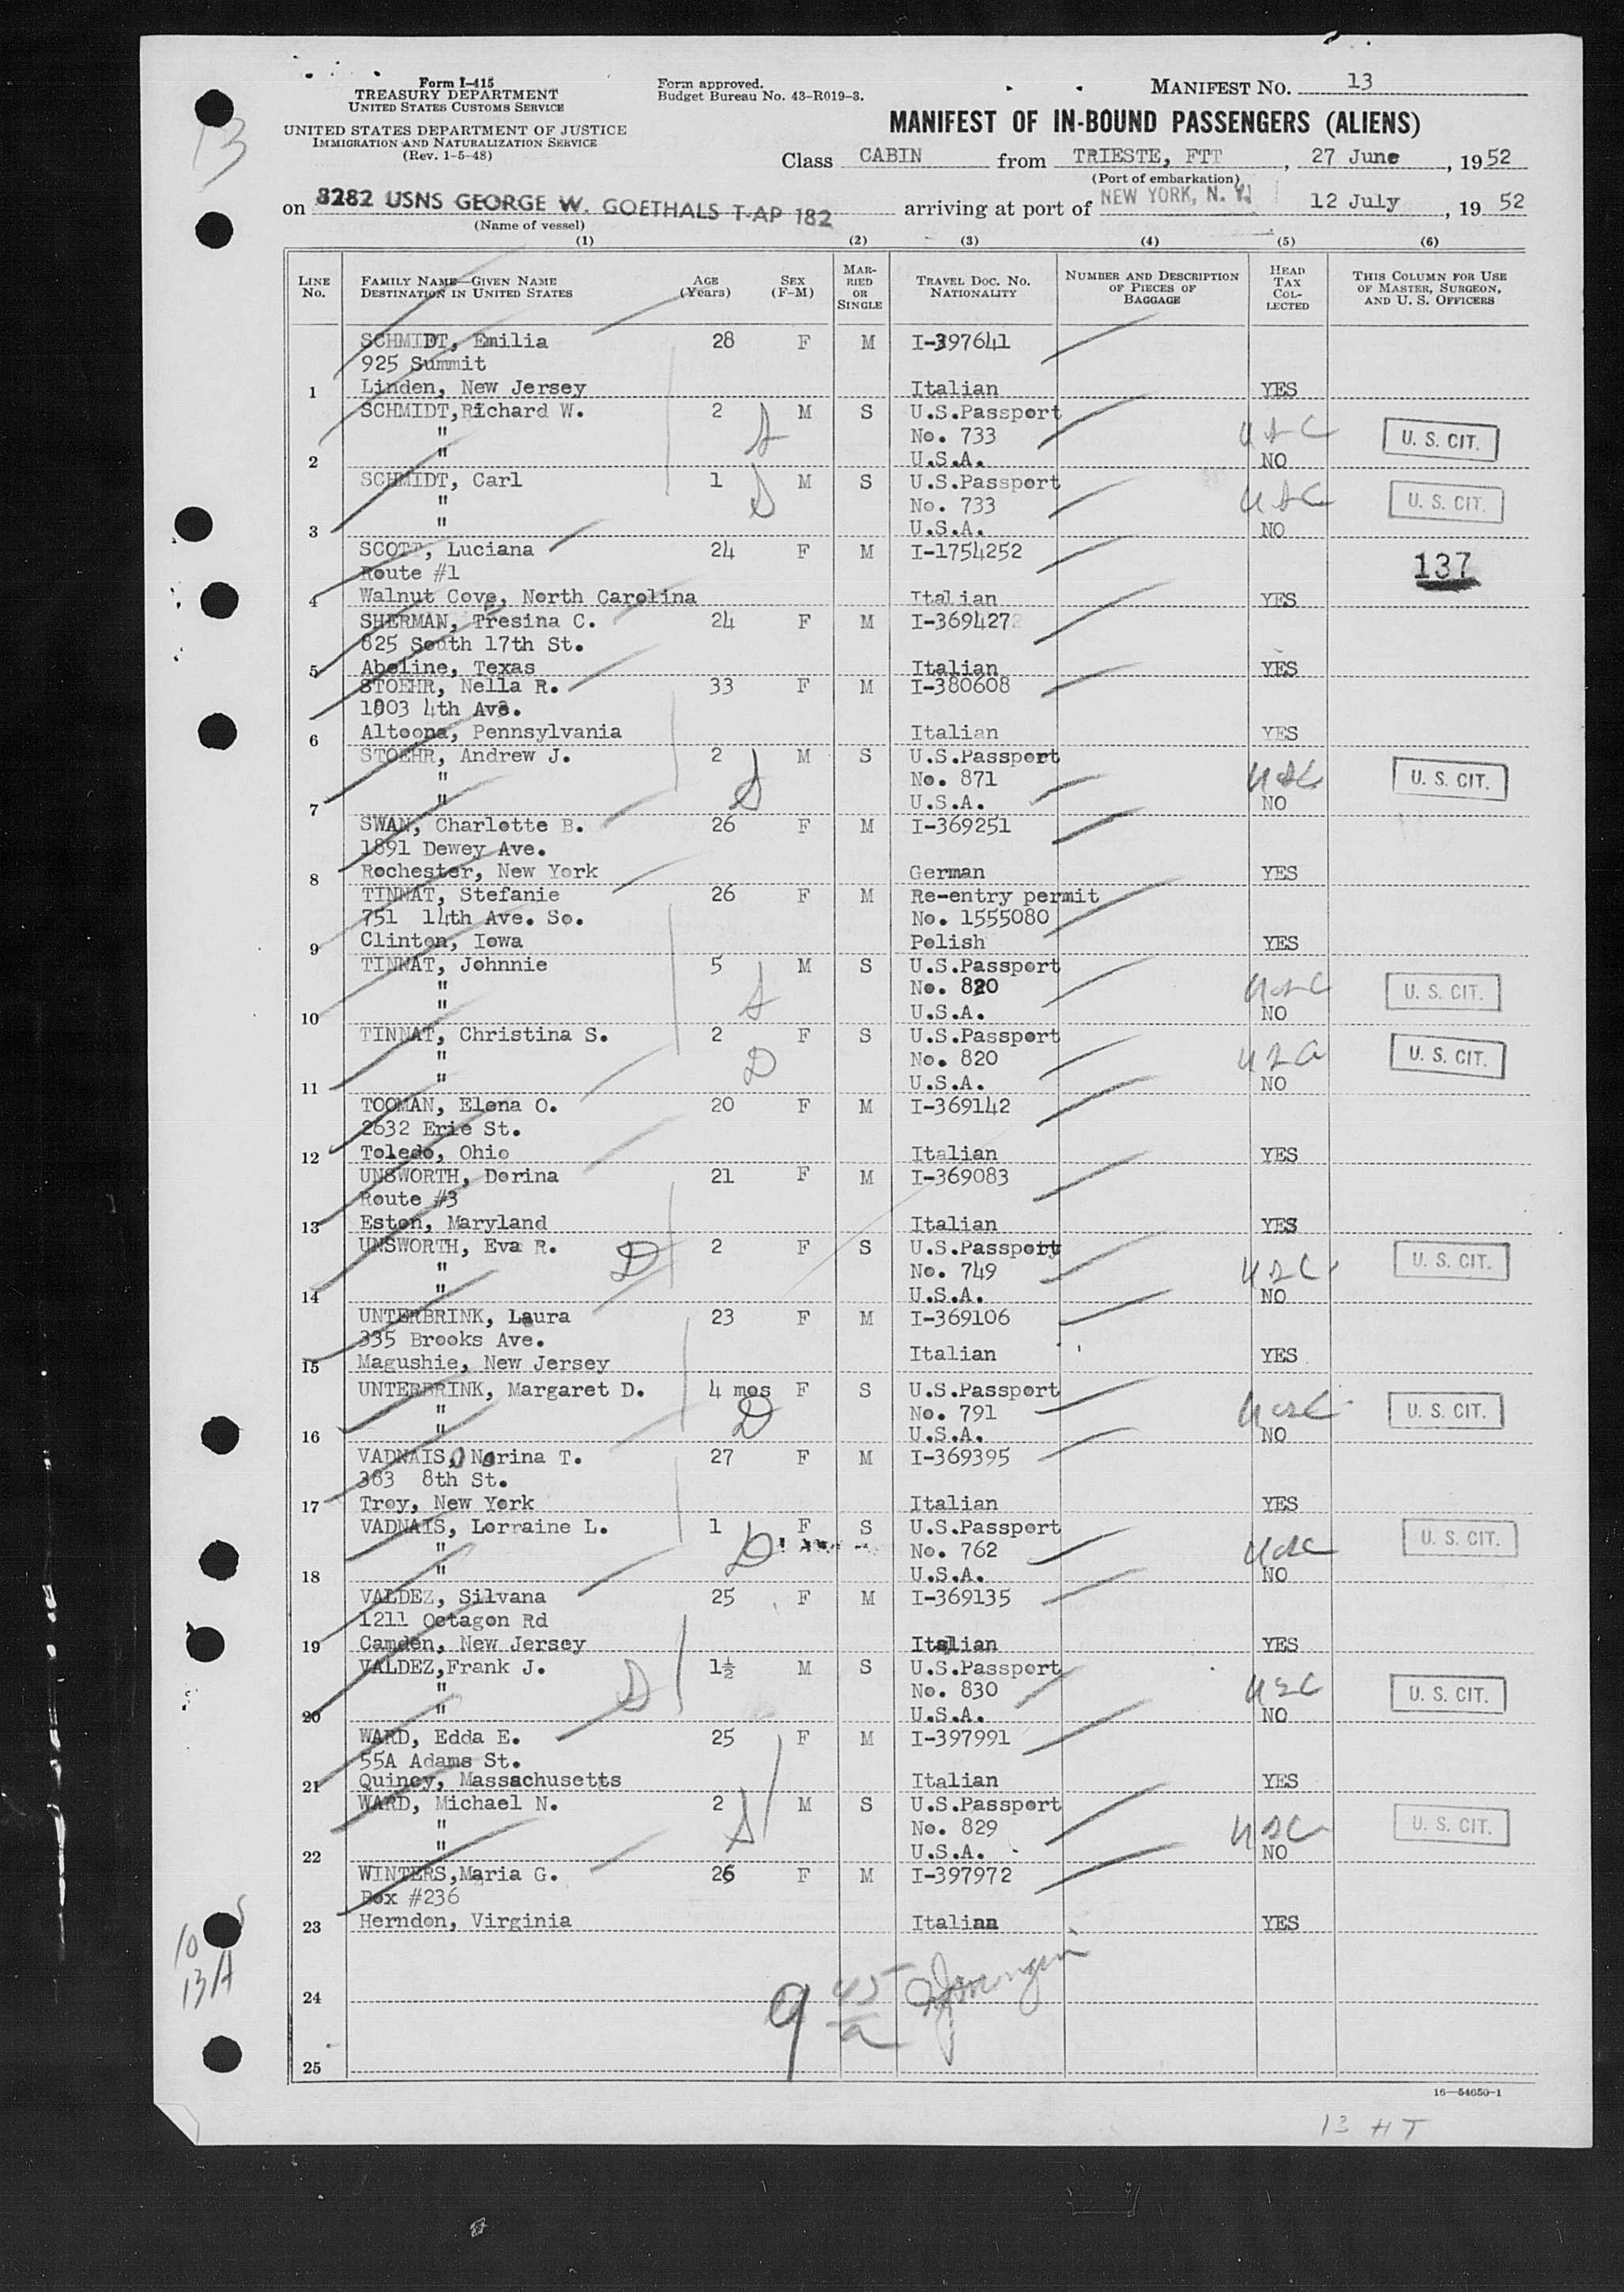 Form I-415
TREASURY DEPARTMENT
UNITED STATES CUSTOMS SERVICE
UNITED STATES DEPARTMENT OF JUSTICE
IMMIGRATION AND NATURALIZATION SERVICE
(Rev. 1-5-48)
Form approved.
Budget Bureau No. 43-R019-3.
MANIFEST NO. 13
13
MANIFEST OF IN-BOUND PASSENGERS (ALIENS)
Class CABIN from TRIESTE, FTT, 27 June, 1952
(Port of embarkation)
on 8282 USNS GEORGE W. GOETHALS T-AP 182 arriving at port of NEW YORK, N. Y. 12 July, 1952
(Name of vessel)
(1) (2) (3) (4) (5) (6)
LINE No. FAMILY NAME—GIVEN NAME DESTINATION IN UNITED STATES AGE (Years) SEX (F-M) MARRIED OR SINGLE TRAVEL DOC. NO. NATIONALITY NUMBER AND DESCRIPTION OF PIECES OF BAGGAGE HEAD TAX COLLECTED THIS COLUMN FOR USE OF MASTER, SURGEON, AND U. S. OFFICERS
SCHMIDT, Emilia 28 F M I-397641
925 Summit
1 Linden, New Jersey Italian YES
SCHMIDT,Richard W. 2 M S U.S.Passport
" No. 733 USC U. S. CIT.
2 " U.S.A. NO
SCHMIDT, Carl 1 M S U.S.Passport
" No. 733 USC U. S. CIT.
3 " U.S.A. NO
SCOTT, Luciana 24 F M I-1754252
Route #1 137
4 Walnut Cove, North Carolina Italian YES
SHERMAN, Tresina C. 24 F M I-3694272
825 South 17th St.
5 Abeline, Texas Italian YES
STOEHR, Nella R. 33 F M I-380608
1803 4th Ave.
6 Altoona, Pennsylvania Italian YES
STOEHR, Andrew J. 2 M S U.S.Passport
" No. 871 USC U. S. CIT.
7 " U.S.A. NO
SWAN, Charlotte B. 26 F M I-369251
1891 Dewey Ave.
8 Rochester, New York German YES
TINNAT, Stefanie 26 F M Re-entry permit
751 14th Ave. So. No. 1555080
9 Clinton, Iowa Polish YES
TINNAT, Johnnie 5 M S U.S.Passport
" No. 820 USC U. S. CIT.
10 " U.S.A. NO
TINNAT, Christina S. 2 F S U.S.Passport
" D No. 820 USC U. S. CIT.
11 " U.S.A. NO
TOOMAN, Elena O. 20 F M I-369142
2632 Erie St.
12 Toledo, Ohio Italian YES
UNSWORTH, Dorina 21 F M I-369083
Route #3
13 Eston, Maryland Italian YES
UNSWORTH, Eva R. D 2 F S U.S.Passport
" No. 749 USC U. S. CIT.
14 " U.S.A. NO
UNTERBRINK, Laura 23 F M I-369106
335 Brooks Ave.
15 Magushie, New Jersey Italian YES
UNTERBRINK, Margaret D. 4 mos F S U.S.Passport
" D No. 791 USC U. S. CIT.
16 " U.S.A. NO
VADNAIS, Norina T. 27 F M I-369395
363 8th St.
17 Troy, New York Italian YES
VADNAIS, Lorraine L. 1 F S U.S.Passport
" D No. 762 USC U. S. CIT.
18 " U.S.A. NO
VALDEZ, Silvana 25 F M I-369135
1211 Octagon Rd
19 Camden, New Jersey Italian YES
VALDEZ,Frank J. 1½ M S U.S.Passport
" No. 830 USC U. S. CIT.
20 " U.S.A. NO
WARD, Edda E. 25 F M I-397991
55A Adams St.
21 Quincy, Massachusetts Italian YES
WARD, Michael N. 2 M S U.S.Passport
" No. 829 USC U. S. CIT.
22 " U.S.A. NO
WINTERS,Maria G. 26 F M I-397972
Box #236
23 Herndon, Virginia Italian YES
10
13A
24
9 45
25
16—54650-1
13 HT